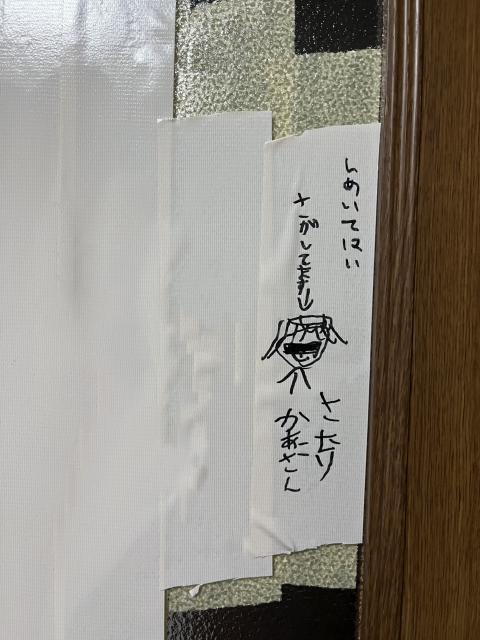 しめいてはい
さがしてます
さたり
かあさん